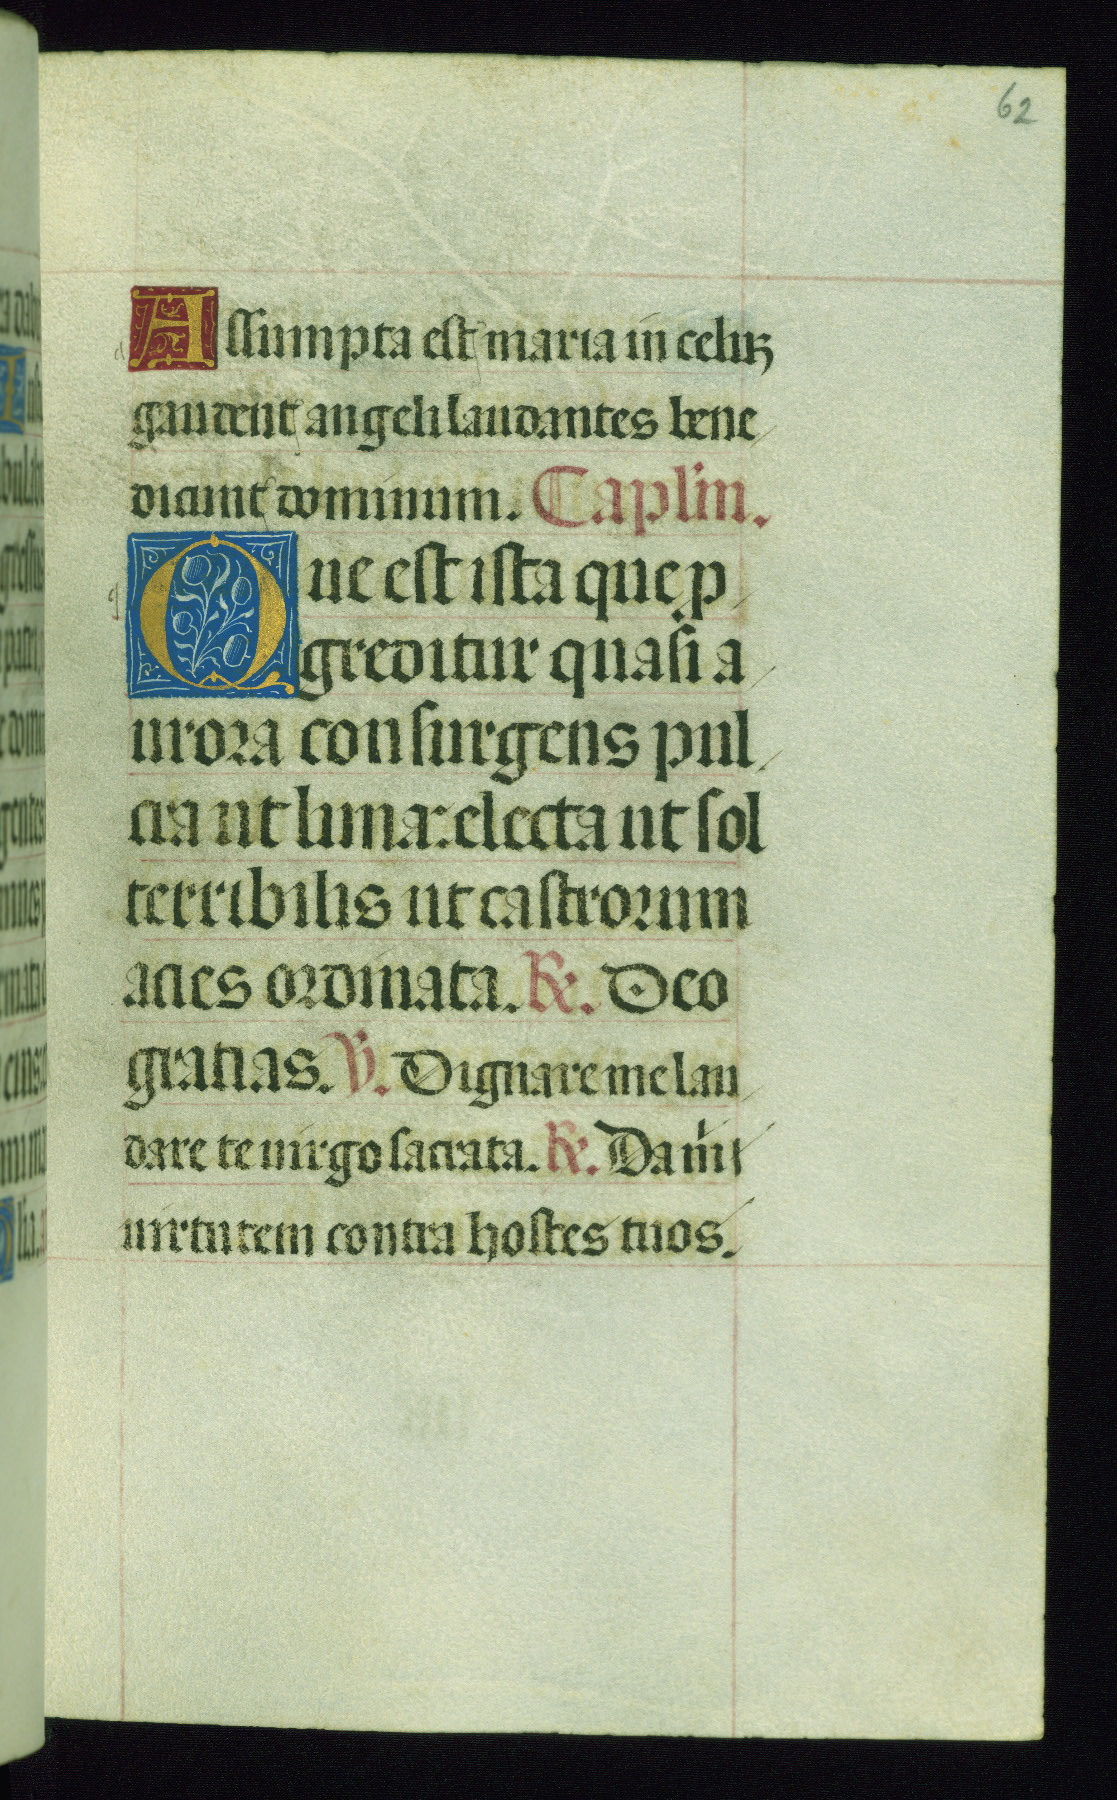 62
Assumpta est maria in celis
gaudent angeli laudantes bene
dicunt dominum. Caplm̄.
Que est ista que ꝓ
greditur quasi a
urora consurgens pul
cra ut luna: electa ut sol
terribilis ut castrorum
acies ordinata. ℟. Deo
gratias. ℣. Dignare me lau
dare te uirgo sacrata. ℟. Da m̄
uirtutem contra hostes tuos.